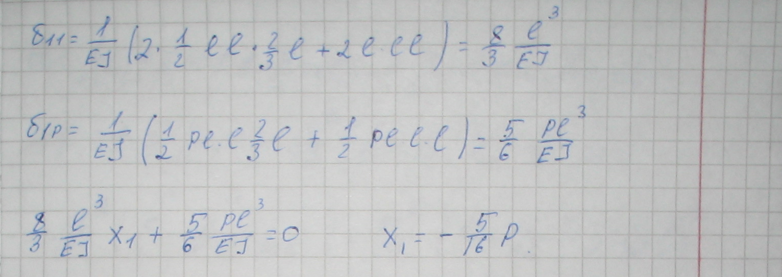 δ₁₁ = 1/EJ (2 · 1/2 ℓℓ · 2/3 ℓ + 2ℓ · ℓℓ) = 8/3 ℓ³/EJ
δ₁p = 1/EJ (1/2 Pℓ · ℓ 2/3 ℓ + 1/2 Pℓ ℓ · ℓ) = 5/6 Pℓ³/EJ
8/3 ℓ³/EJ X₁ + 5/6 Pℓ³/EJ = 0 X₁ = - 5/16 P.